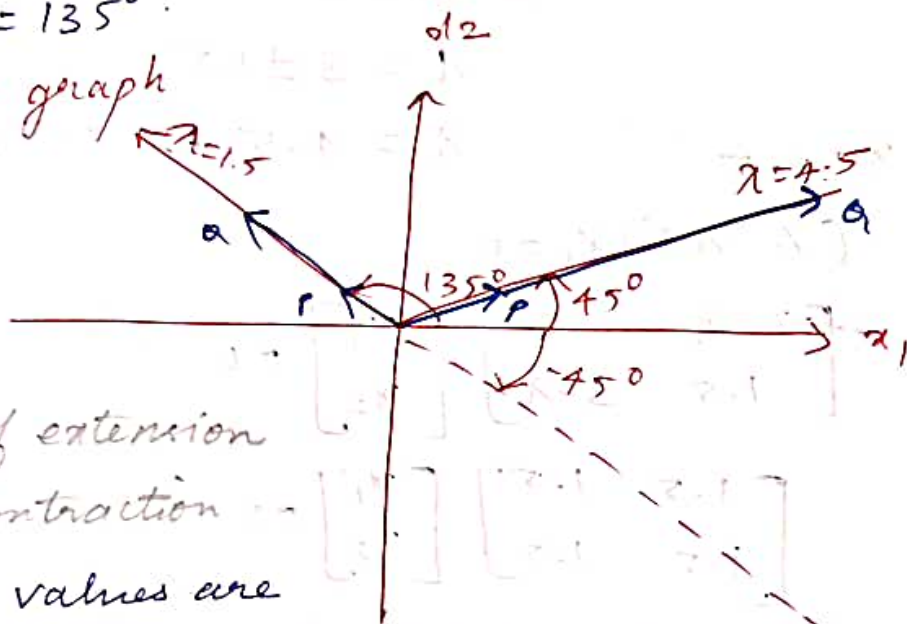 = 135°.
x2
graph
λ=1.5
λ=4.5
Q
Q
135°
P
P
45°
x1
-45°
f extension
ntraction
values are